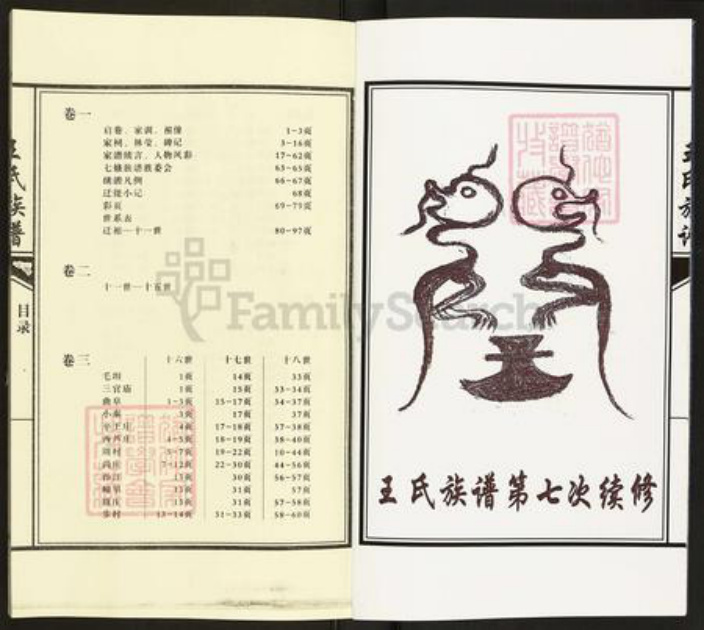 王氏族谱
目录
卷一
启卷、家训、祖像 1-3页
家祠、林茔、碑记 3-16页
家谱续言、人物风彩 17-62页
七修族谱族委会 63-65页
续谱凡例 66-67页
迁徙小记 68页
彩页 69-79页
世系表
迁祖—十一世 80-97页
卷二
十一世—十五世
卷三
十六世 十七世 十八世
毛坦 1页 14页 33页
三官庙 1页 15页 33-34页
曲阜 1-3页 15-17页 34-37页
小 3页 17页 37页
辛王庄 4页 17-18页 37-38页
西 庄 4-5页 18-19页 38-40页
周村 5-7页 19-22页 10-44页
尚庄 7-12页 22-30页 44-56页
13页 30页 56-57页
13页 31页 57页
庄 13页 31页 57-58页
步村 13-14页 31-33页 58-60页
FamilySearch
王氏族谱第七次续修
王氏族谱